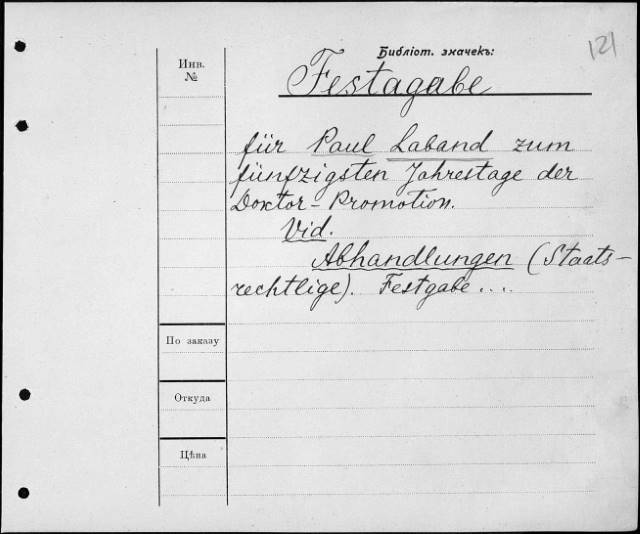 121
Библіот. значекъ:
Инв.
№
Festagabe
für Paul Laband zum
fünfzigsten Jahrestage der
Doktor-Promotion.
Vid.
Abhandlungen (Staats-
rechtlige). Festgabe ....
По заказу
Откуда
Цѣна